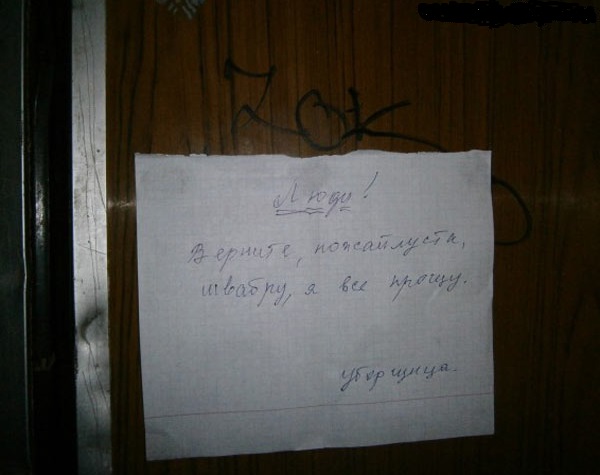 Zok
Люди!
Верните, пожайлуста,
швабру, я все прощу.
уборщица.